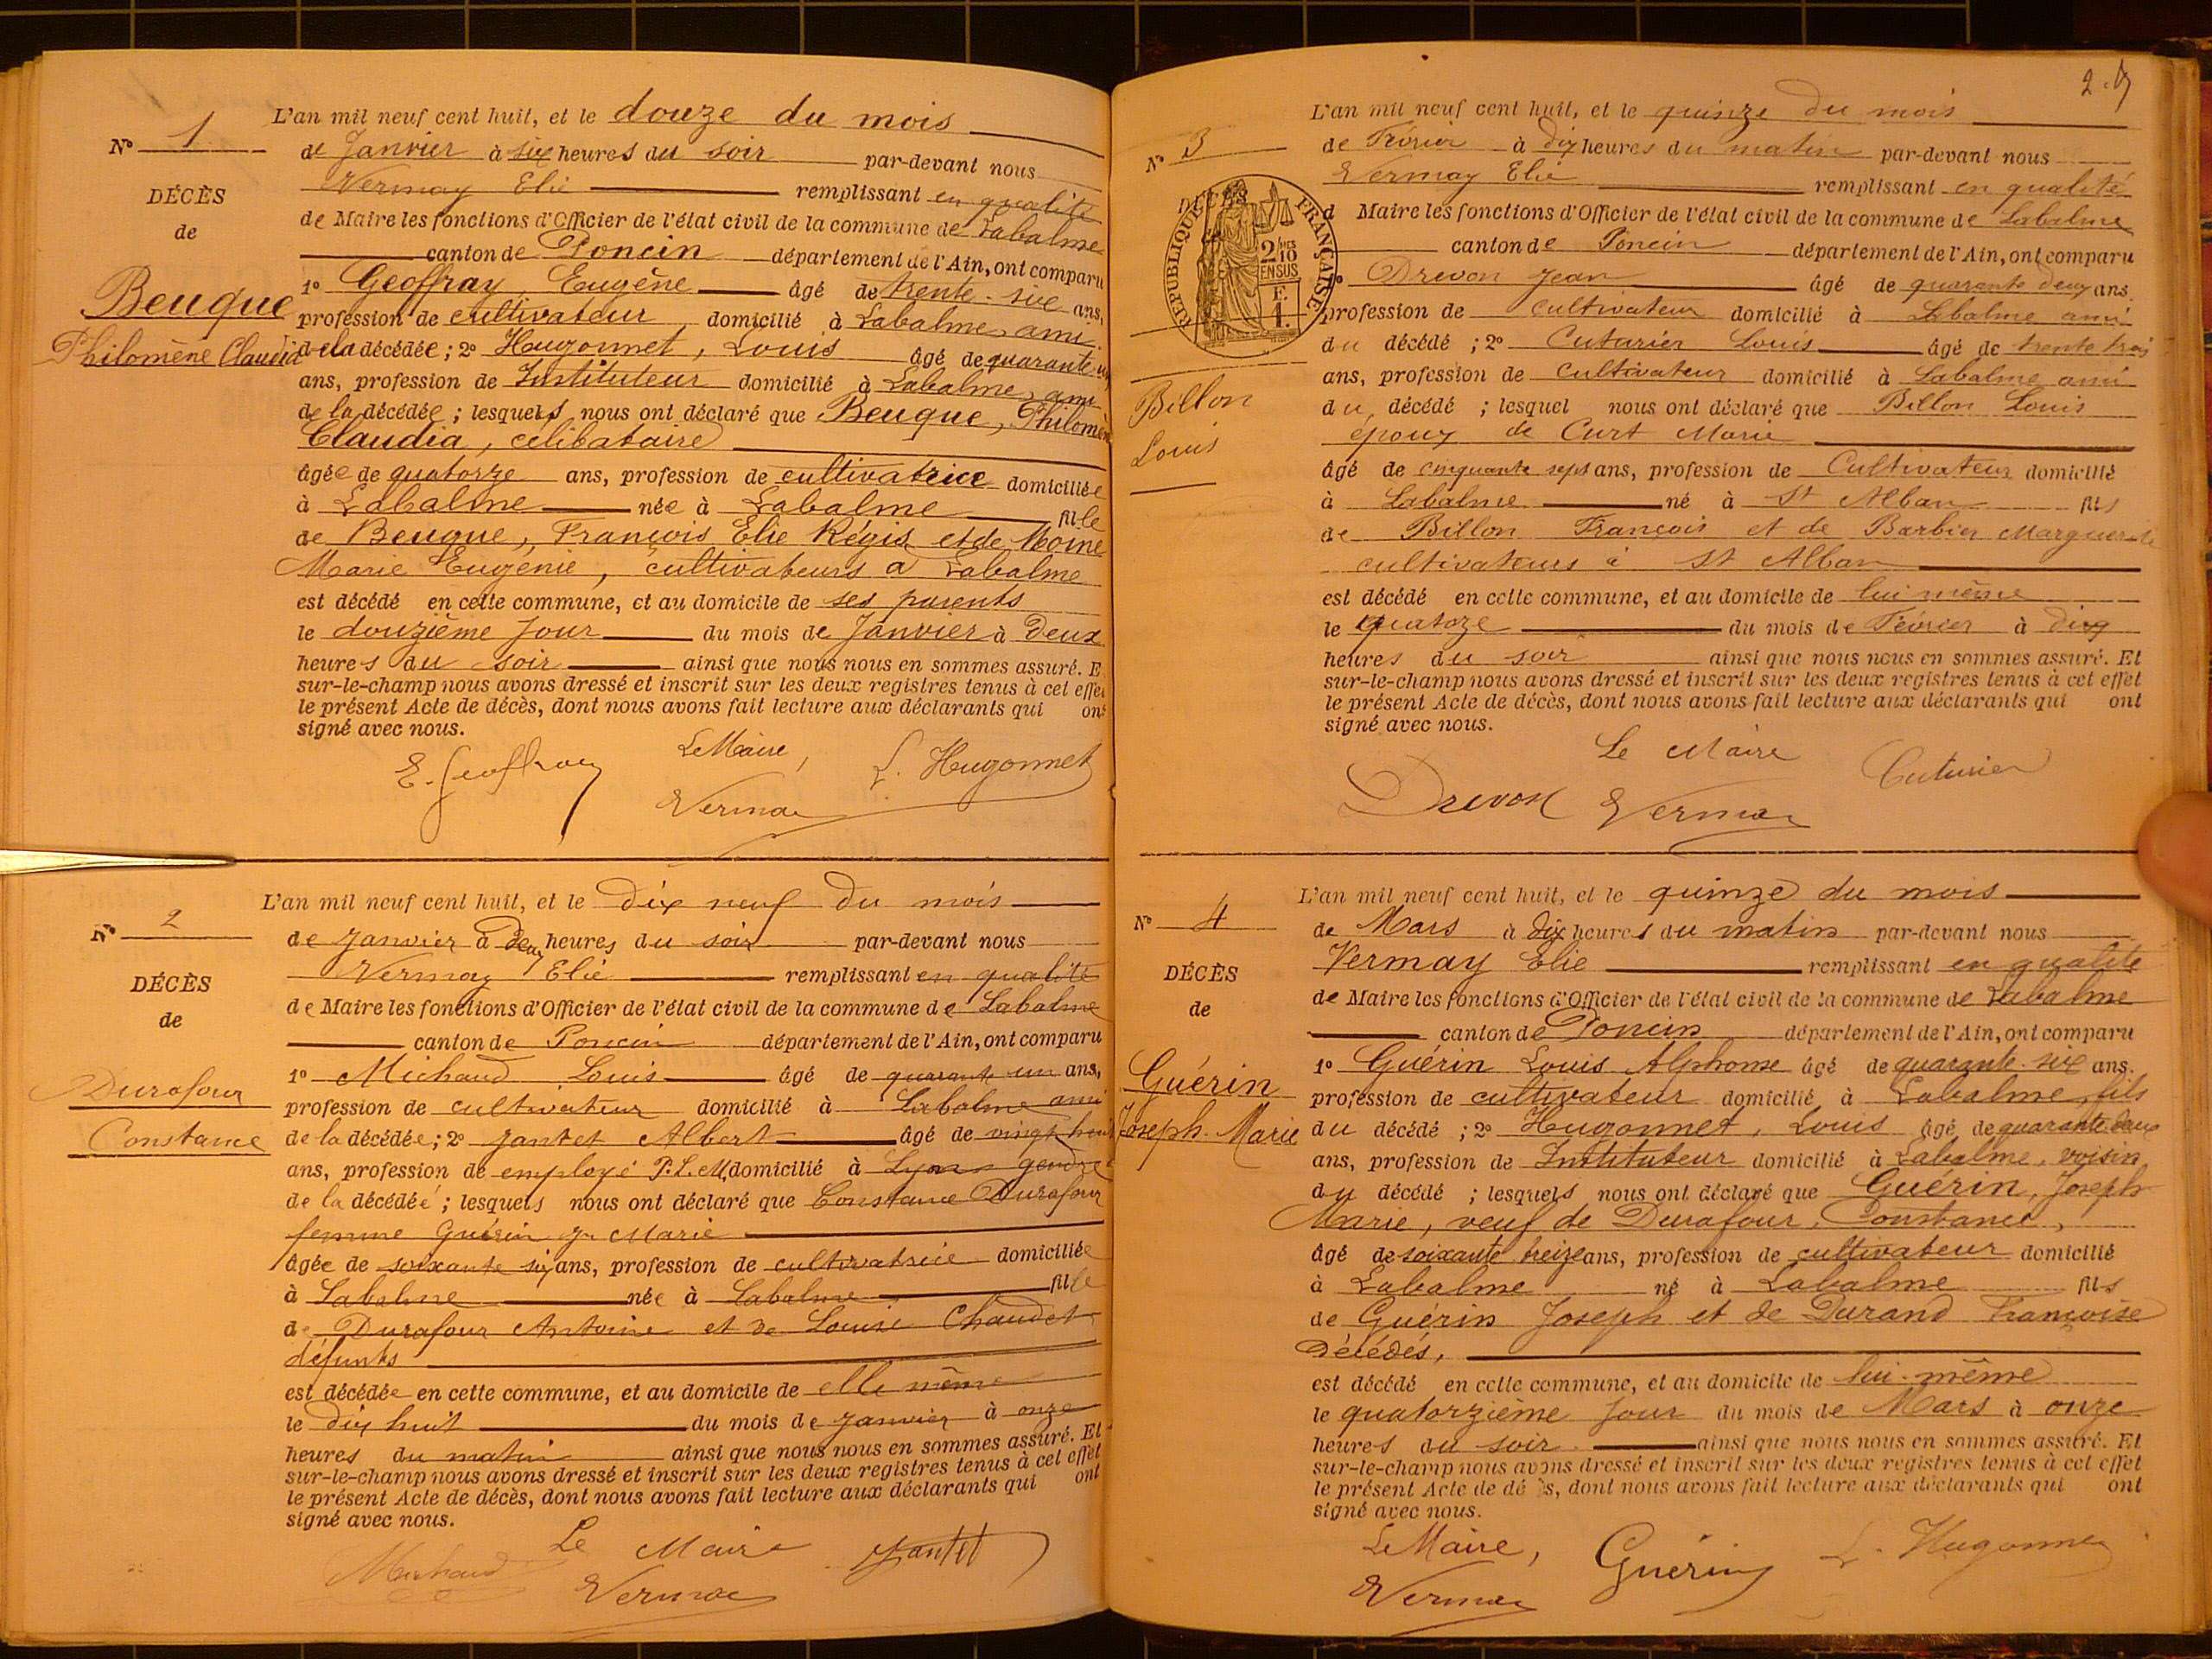 N° 1
DÉCÈS
de
Beuque
Philomène Claudia
L'an mil neuf cent huit, et le douze du mois
de Janvier à six heures du soir par-devant nous
Vermay Elie remplissant en qualité
de Maire les fonctions d'Officier de l'état civil de la commune de Labalme
canton de Poncin département de l'Ain, ont comparu
1° Geoffray, Eugène âgé de trente-six ans,
profession de cultivateur domicilié à Labalme, ami
de la décédée ; 2° Hugonnet, Louis âgé de quarante-un
ans, profession de Instituteur domicilié à Labalme, ami
de la décédée ; lesquels nous ont déclaré que Beuque, Philomène
Claudia, célibataire
âgée de quatorze ans, profession de cultivatrice domiciliée
à Labalme née à Labalme fille
de Beuque, François Elie Régis et de Moine
Marie Eugénie, cultivateurs à Labalme
est décédé en cette commune, et au domicile de ses parents
le douzième jour du mois de Janvier à Deux
heures du soir ainsi que nous nous en sommes assuré. E
sur-le-champ nous avons dressé et inscrit sur les deux registres tenus à cet effet
le présent Acte de décès, dont nous avons fait lecture aux déclarants qui ont
signé avec nous.
Le Maire,
E. Geoffray L. Hugonnet
Vermay
N° 2
DÉCÈS
de
Durafour
Constance
L'an mil neuf cent huit, et le dix neuf du mois
de Janvier à Deux heures du soir par-devant nous
Vermay Elie remplissant en qualité
de Maire les fonctions d'Officier de l'état civil de la commune de Labalme
canton de Poncin département de l'Ain, ont comparu
1° Michaud Louis âgé de quarante un ans,
profession de cultivateur domicilié à Labalme ami
de la décédée ; 2° Jantet Albert âgé de vingt huit
ans, profession de employé P.L.M. domicilié à Lyon gendre
de la décédée ; lesquels nous ont déclaré que Constance Durafour
femme Guérin Jh Marie
âgée de soixante six ans, profession de cultivatrice domiciliée
à Labalme née à Labalme fille
de Durafour Antoine et de Louise Chaudet
défunts
est décédée en cette commune, et au domicile de elle même
le dix huit du mois de Janvier à onze
heures du matin ainsi que nous nous en sommes assuré. Et
sur-le-champ nous avons dressé et inscrit sur les deux registres tenus à cet effet
le présent Acte de décès, dont nous avons fait lecture aux déclarants qui ont
signé avec nous.
Le Maire Jantet
Michaud Vermay
N° 3
RÉPUBLIQUE FRANÇAISE
2/10
EN SUS
Billon
Louis
L'an mil neuf cent huit, et le quinze du mois
de Février à dix heures du matin par-devant nous
Vermay Elie remplissant en qualité
d Maire les fonctions d'Officier de l'état civil de la commune de Labalme
canton de Poncin département de l'Ain, ont comparu
Drevon Jean âgé de quarante deux ans.
profession de cultivateur domicilié à Labalme ami
du décédé ; 2° Cuturier Louis âgé de trente trois
ans, profession de cultivateur domicilié à Labalme ami
du décédé ; lesquel nous ont déclaré que Billon Louis
époux de Curt Marie
âgé de cinquante sept ans, profession de Cultivateur domicilié
à Labalme né à St Alban fils
de Billon François et de Barbier Marguerite
cultivateurs à St Alban
est décédé en cette commune, et au domicile de lui même
le quatoze du mois de Février à dix
heures du soir ainsi que nous nous en sommes assuré. Et
sur-le-champ nous avons dressé et inscrit sur les deux registres tenus à cet effet
le présent Acte de décès, dont nous avons fait lecture aux déclarants qui ont
signé avec nous.
Le Maire Cuturier
Drevon Vermay
N° 4
DÉCÈS
de
Guérin
Joseph-Marie
L'an mil neuf cent huit, et le quinze du mois
de Mars à dix heures du matin par-devant nous
Vermay Elie remplissant en qualité
de Maire les fonctions d'Officier de l'état civil de la commune de Labalme
canton de Poncin département de l'Ain, ont comparu
1° Guérin Louis Alphonse âgé de quarante-six ans.
profession de cultivateur domicilié à Labalme, fils
du décédé ; 2° Hugonnet, Louis âgé de quarante-deux
ans, profession de Instituteur domicilié à Labalme, voisin
du décédé ; lesquels nous ont déclaré que Guérin, Joseph
Marie, veuf de Durafour, Constance,
âgé de soixante treize ans, profession de cultivateur domicilié
à Labalme né à Labalme fils
de Guérin Joseph et de Durand Françoise
Décédés,
est décédé en cette commune, et au domicile de lui-même
le quatorzième jour du mois de Mars à onze
heures du soir ainsi que nous nous en sommes assuré. Et
sur-le-champ nous avons dressé et inscrit sur les deux registres tenus à cet effet
le présent Acte de décès, dont nous avons fait lecture aux déclarants qui ont
signé avec nous.
Le Maire, Guérin L. Hugonnet
Vermay